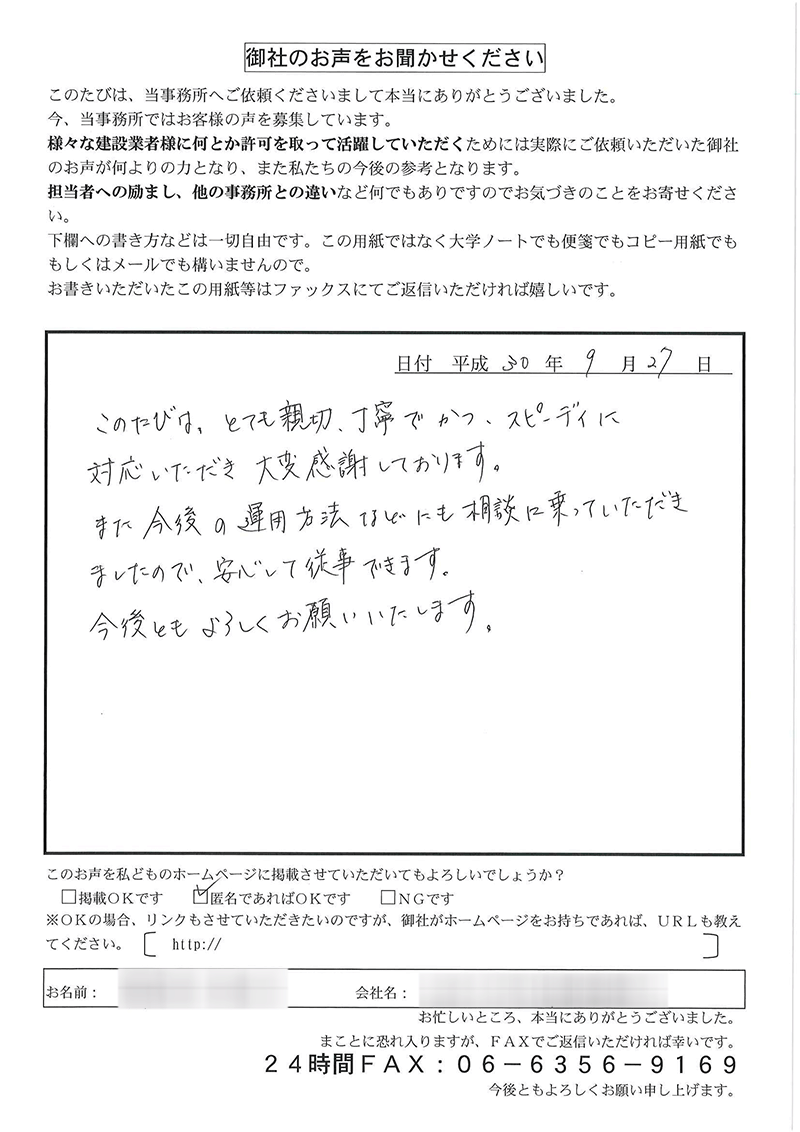 御社のお声をお聞かせください
このたびは、当事務所へご依頼くださいまして本当にありがとうございました。
今、当事務所ではお客様の声を募集しています。
様々な建設業者様に何とか許可を取って活躍していただくためには実際にご依頼いただいた御社
のお声が何よりの力となり、また私たちの今後の参考となります。
担当者への励まし、他の事務所との違いなど何でもありですのでお気づきのことをお寄せくださ
い。
下欄への書き方などは一切自由です。この用紙ではなく大学ノートでも便箋でもコピー用紙でも
もしくはメールでも構いませんので。
お書きいただいたこの用紙等はファックスにてご返信いただければ嬉しいです。
日付 平成 30 年 9 月 27 日
このたびは、とても親切、丁寧でかつ、スピーディに
対応いただき大変感謝しております。
また今後の運用方法などにも相談に乗っていただき
ましたので、安心して従事できます。
今後ともよろしくお願いいたします。
このお声を私どものホームページに掲載させていただいてもよろしいでしょうか？
□掲載ＯＫです ☑匿名であればＯＫです □ＮＧです
※ＯＫの場合、リンクもさせていただきたいのですが、御社がホームページをお持ちであれば、ＵＲＬも教え
てください。〔 http:// 〕
お名前： 会社名：
お忙しいところ、本当にありがとうございました。
まことに恐れ入りますが、ＦＡＸでご返信いただければ幸いです。
２４時間ＦＡＸ：０６－６３５６－９１６９
今後ともよろしくお願い申し上げます。